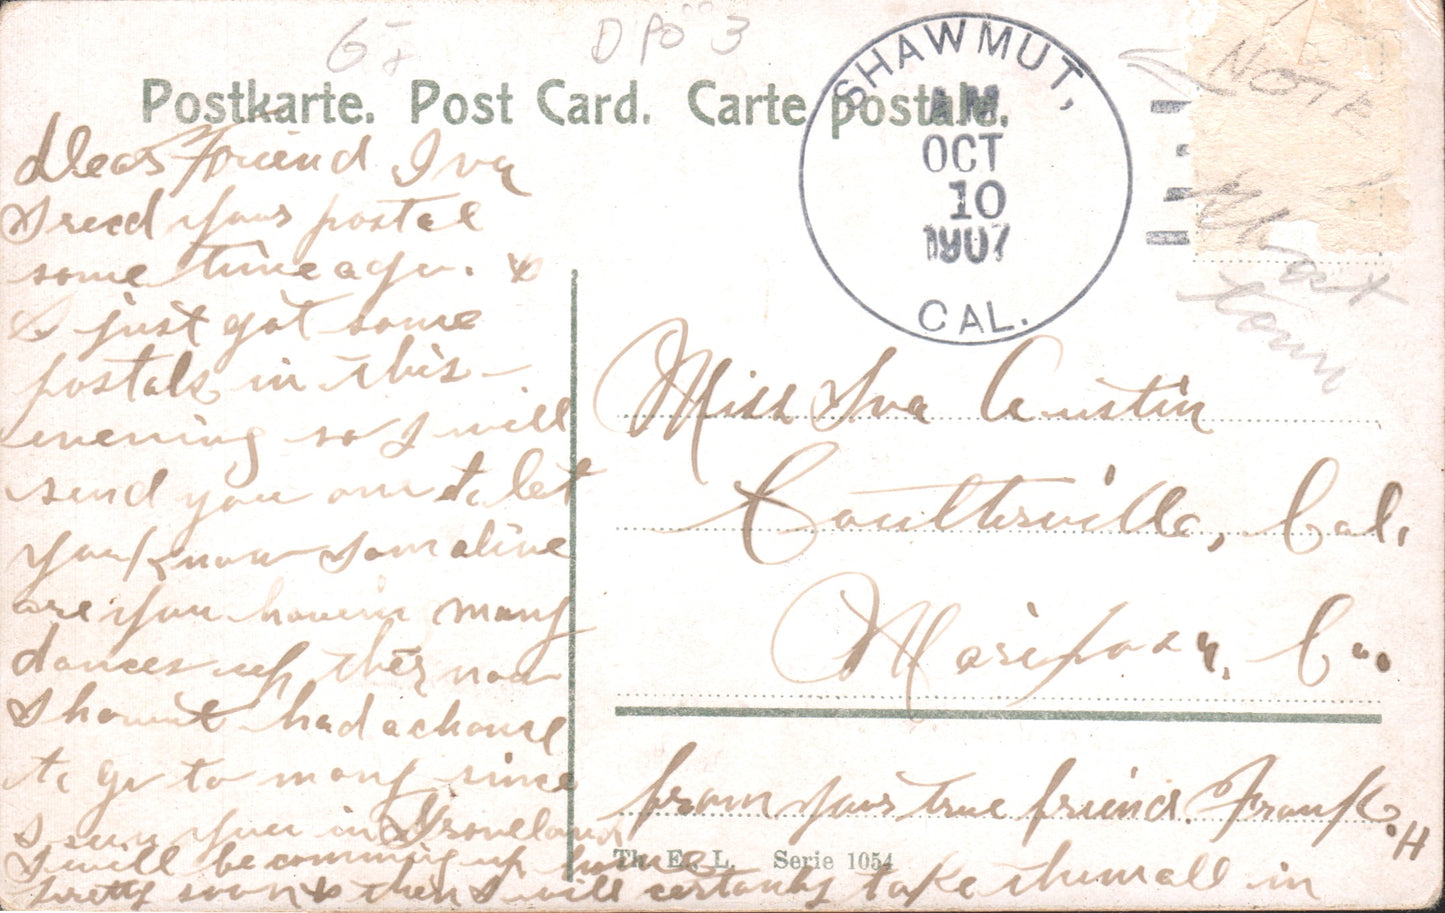 DPO 3
Postkarte. Post Card. Carte postale.
SHAWMUT,
AM
OCT
10
1907
CAL.
NOTE
Ghost
Town
Dear Friend Iva
I recd your postal
some time ago. &
& just got some
postals in this
evening so I will
send you one to let
you know I am alive
are you havein many
dances up ther now
I havent had a chance
to go to many since
I seen you in Groveland
I will be comming up home
pretty soon & then I will certanly take them all in
Miss Iva Austin
Coulterville, Cal.
Mariposa, Co.
from your true friend. Frank. H
Th. E. L. Serie 1054